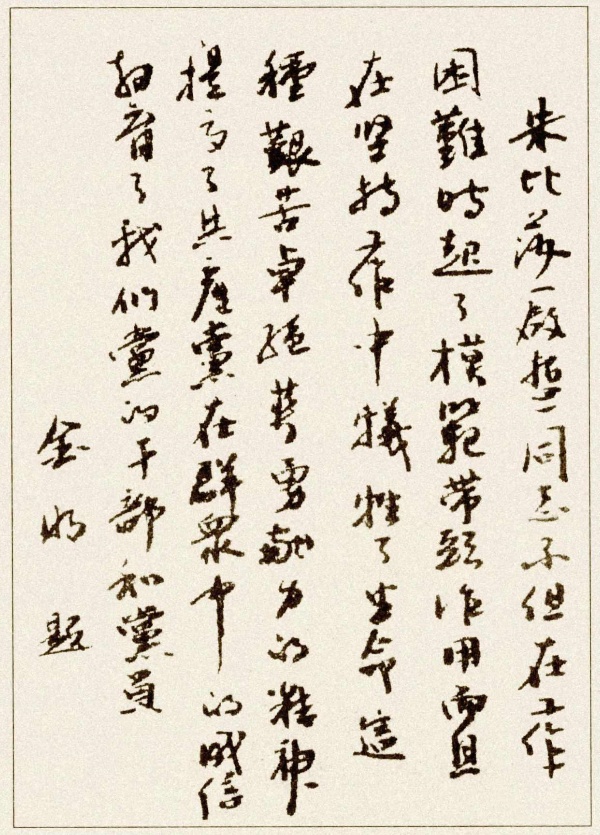 朱比莎一啟哲同志不但在工作
困難時起了模範带頭作用而且
在坚持工作中犧牲了生命這
種艱苦卓绝英勇献身的精神
提高了共產黨在群眾中的威信
教育了我们黨的干部和黨員
金明 题